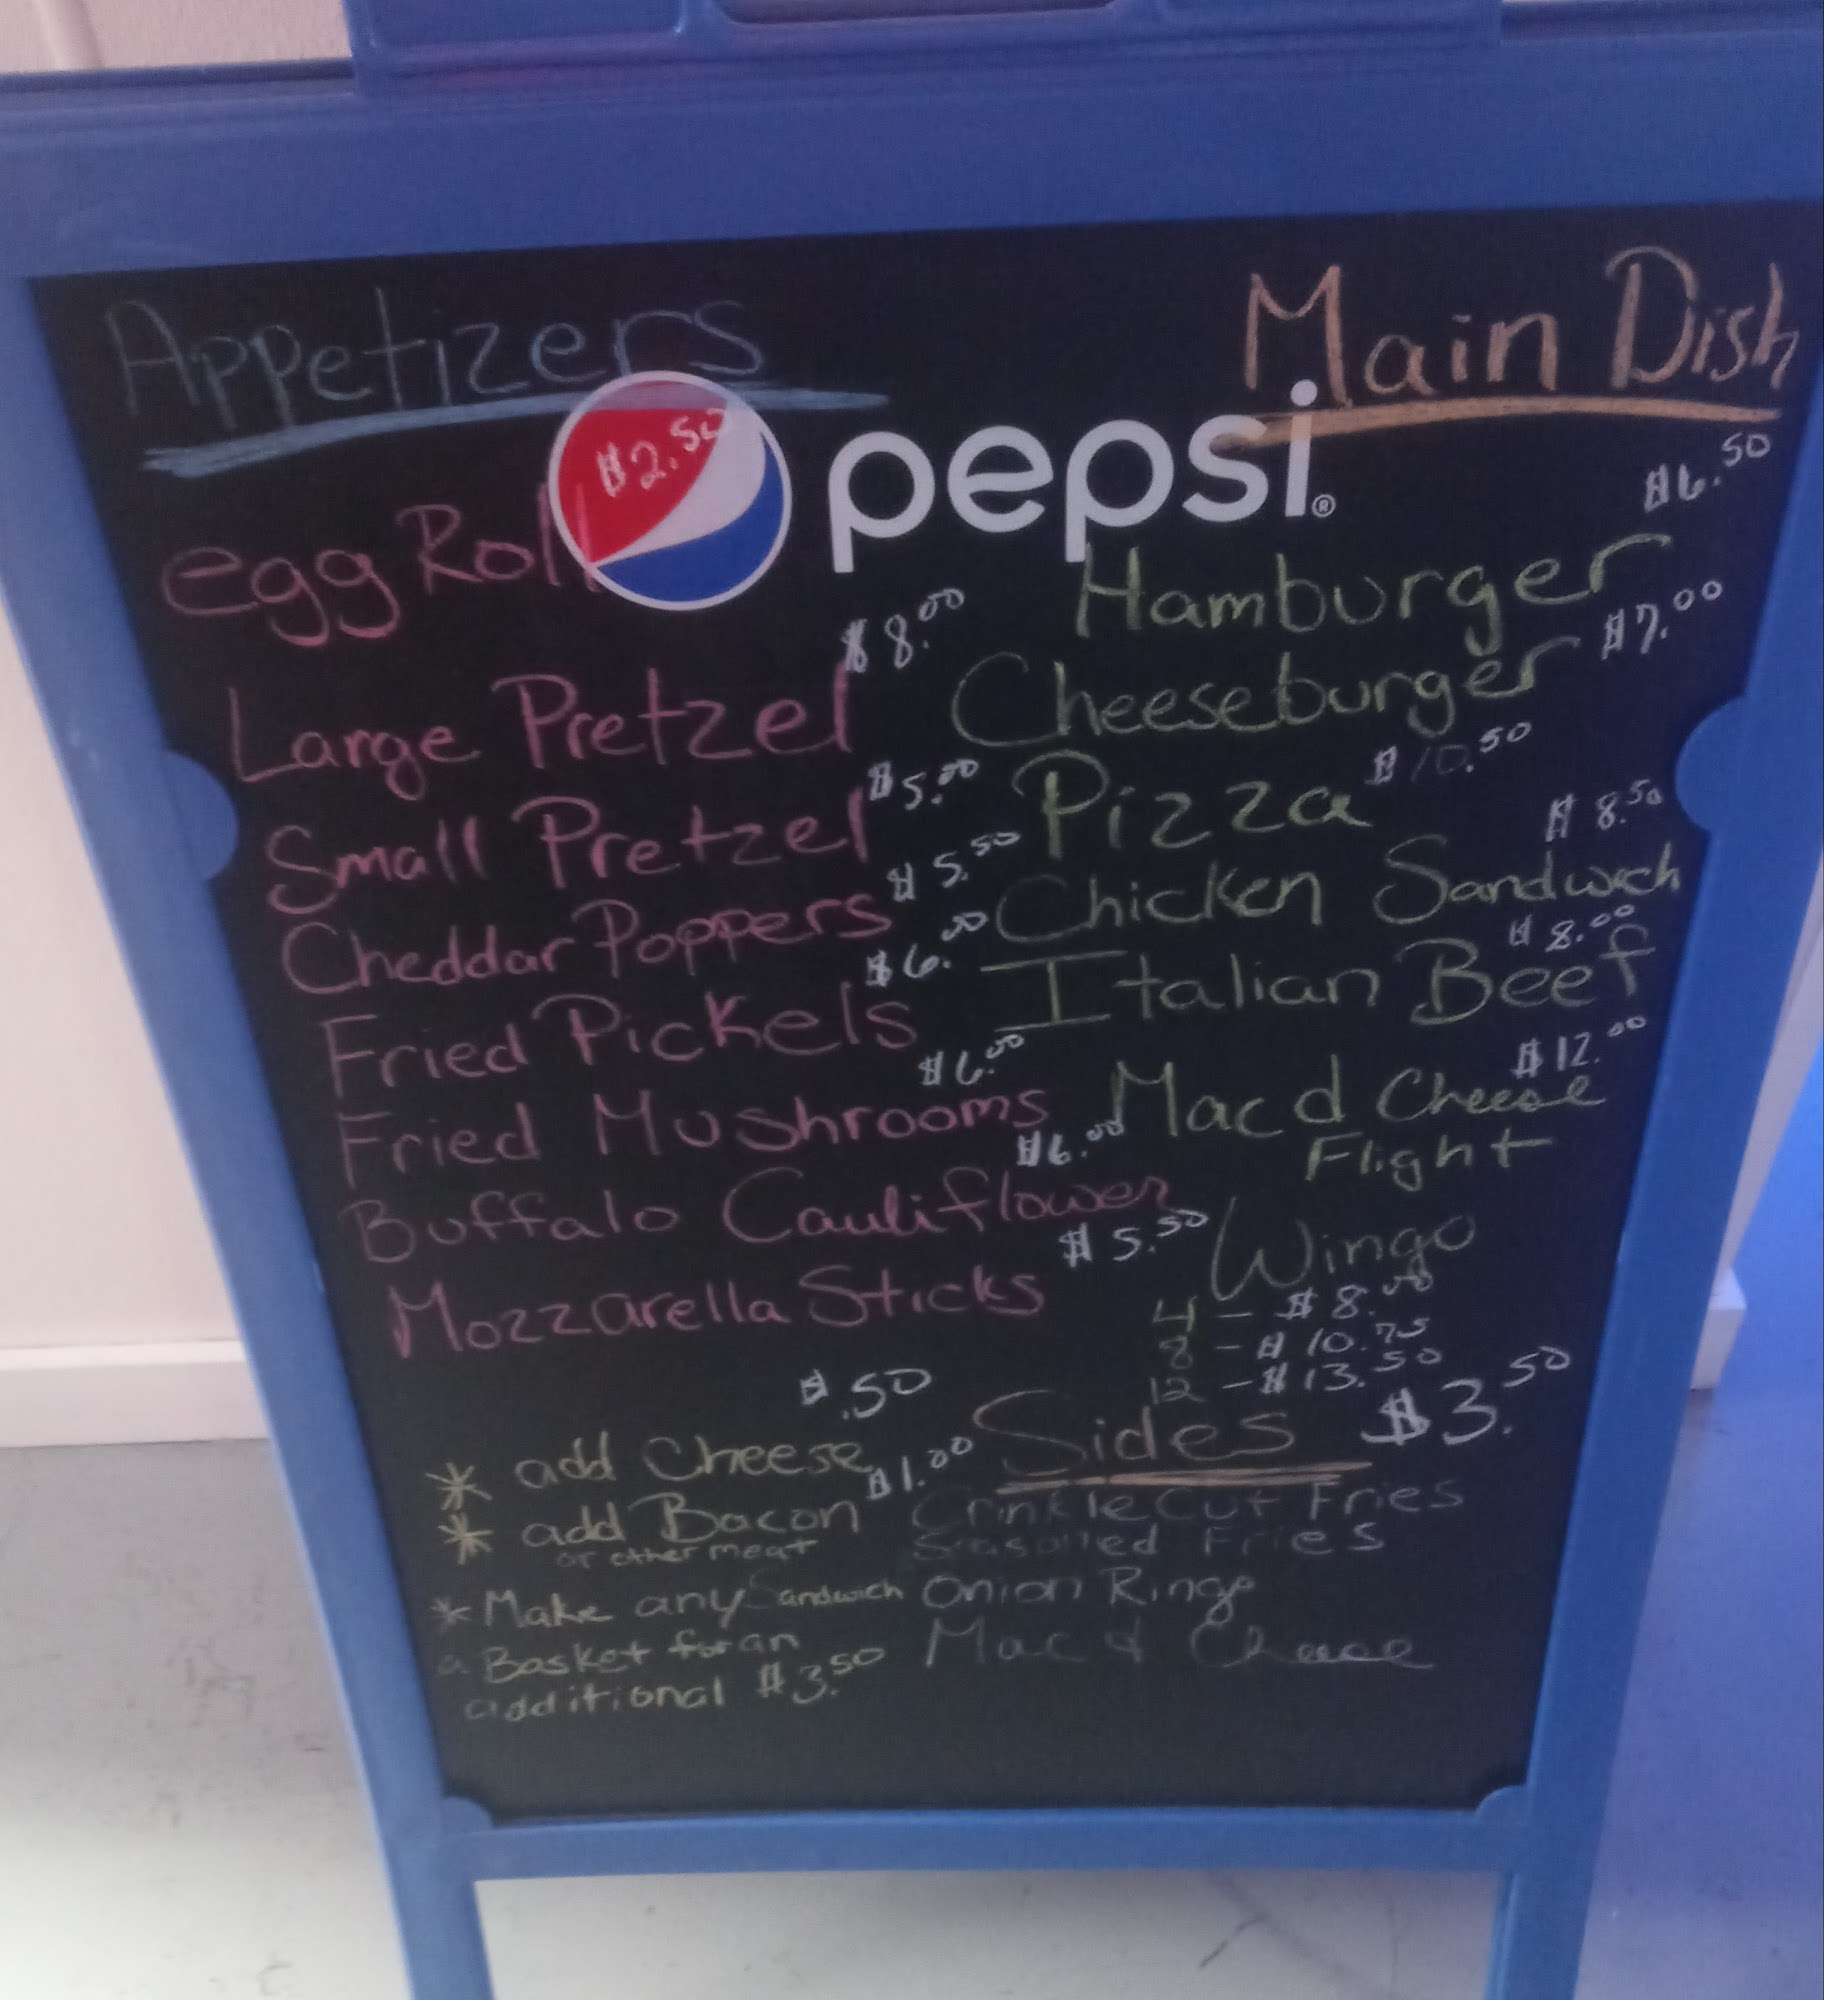 Appetizers
pepsi®
egg Roll $2.50
Large Pretzel $8.00
Small Pretzel $5.00
Cheddar Poppers $5.50
Fried Pickels $6.00
Fried Mushrooms $6.00
Buffalo Cauliflower $6.00
Mozzarella Sticks $5.50
$.50
* add Cheese
* add Bacon $1.00
or other meat
* Make any Sandwich
a Basket for an
additional $3.50
Main Dish
Hamburger $6.50
Cheeseburger $7.00
Pizza $10.50
Chicken Sandwich $8.50
Italian Beef $8.00
Mac & Cheese $12.00
Flight
Wings
4 - $8.00
8 - $10.75
12 - $13.50
Sides $3.50
Crinkle Cut Fries
Seasoned Fries
Onion Rings
Mac & Cheese